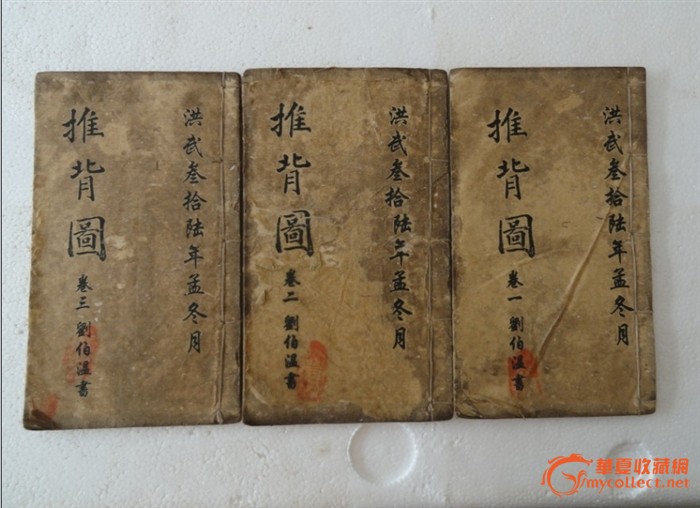 洪武叁拾陆年孟冬月
推背圖
卷一 劉伯溫書
洪武叁拾陆年孟冬月
推背圖
卷二 劉伯溫書
洪武叁拾陆年孟冬月
推背圖
卷三 劉伯溫書
華夏收藏網
mycollect.net